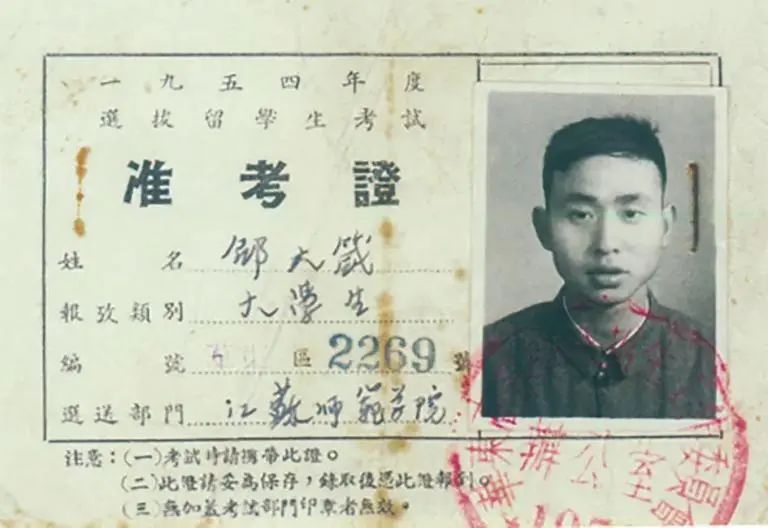 一九五四年度
選拔留學生考試
准考證
姓名 邵大箴
報攷類別 大學生
編號 區 2269 號
選送部門 江蘇师範学院
注意：(一)考試時請攜帶此證。
(二)此證請妥為保存，錄取後憑此證報到。
(三)無加蓋考試部門印章者無效。
辦公室